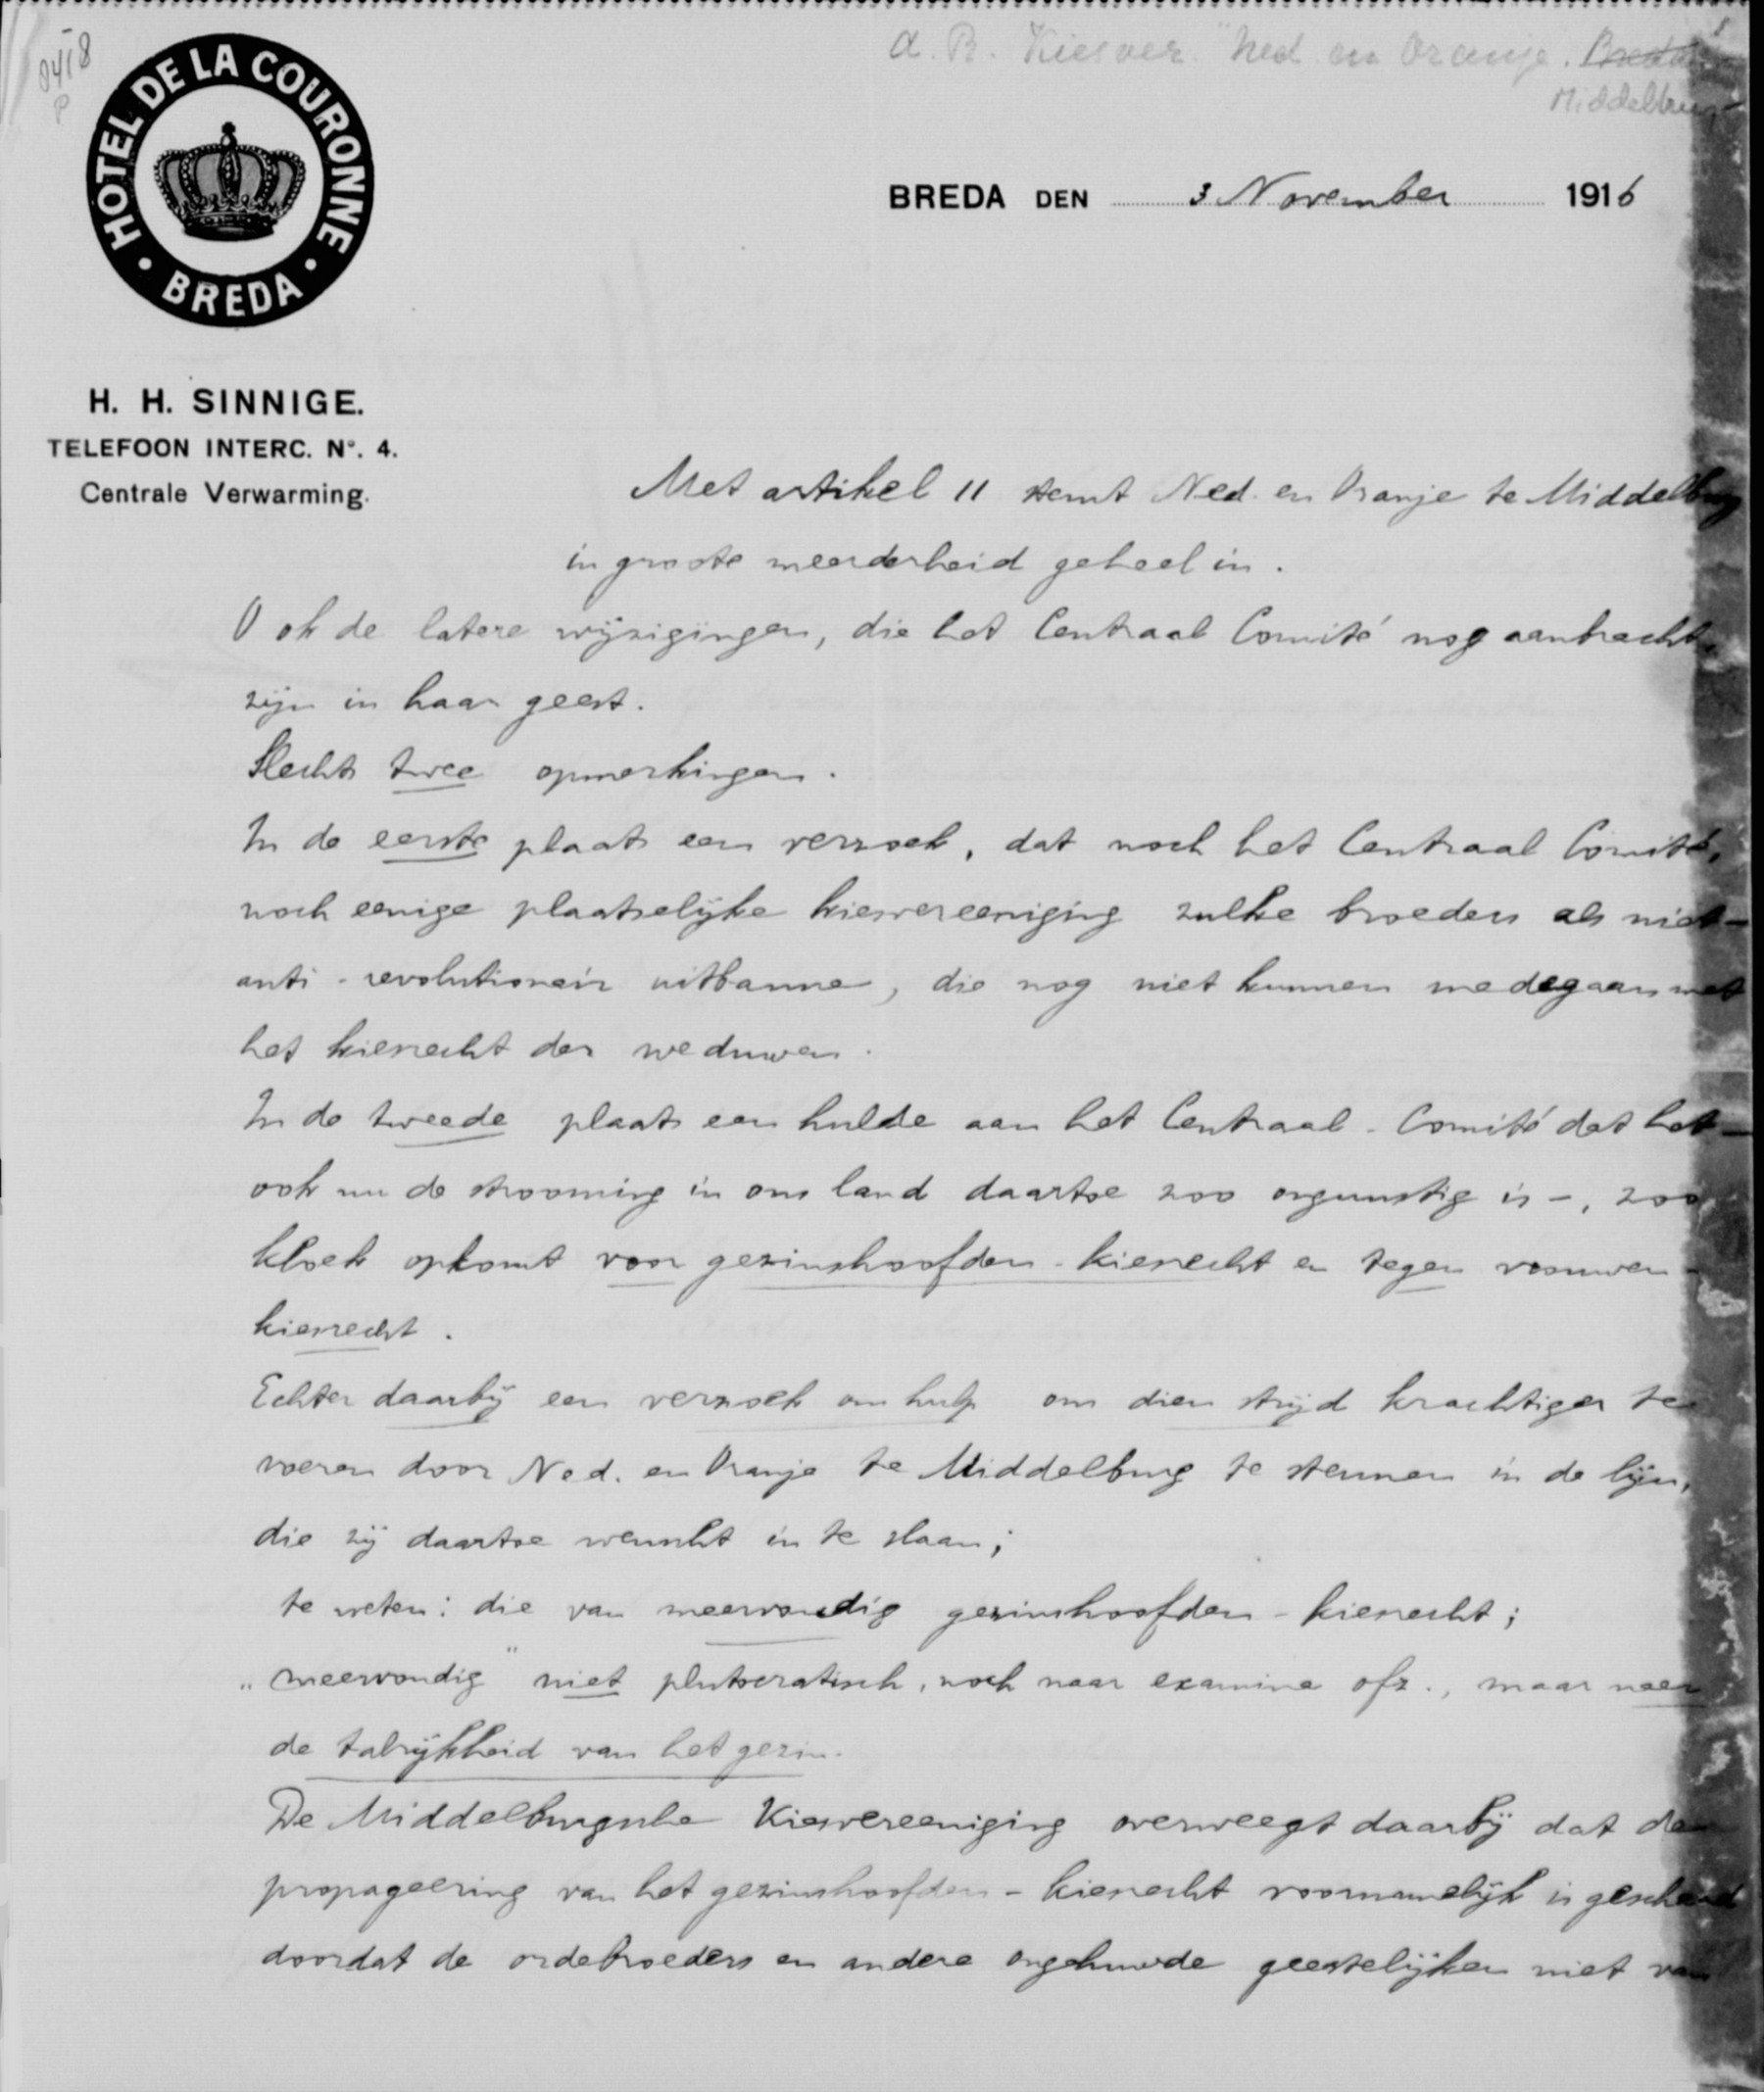 0418
P
A. R. Kiesver. "Ned en Oranje. Breda
Middelburg
HOTEL DE LA COURONNE
• BREDA •
BREDA DEN 3 November 1916
H. H. SINNIGE.
TELEFOON INTERC. N°. 4.
Centrale Verwarming.
Met artikel 11 stemt Ned. en Oranje te Middelburg
in groote meerderheid geheel in.
Ook de latere wijzigingen, die het Centraal Comité nog aanbracht,
zijn in haar geest.
Slechts twee opmerkingen.
In de eerste plaats een verzoek, dat noch het Centraal Comité,
noch eenige plaatselijke kiesvereeniging zulke broeders als niet-
anti-revolutionair uitbanne, die nog niet kunnen medegaan met
het kiesrecht der weduwen.
In de tweede plaats een hulde aan het Centraal-Comité dat het -
ook nu de strooming in ons land daartoe zoo ongunstig is -, zoo
kloek opkomt voor gezinshoofden-kiesrecht en tegen vrouwen-
kiesrecht.
Echter daarbij een verzoek om hulp om dien strijd krachtiger te
voeren door Ned. en Oranje te Middelburg te steunen in de lijn,
die zij daartoe wenscht in te slaan;
te weten: die van meervoudig gezinshoofden-kiesrecht;
"meervoudig" niet plutocratisch, noch naar examina ofz., maar naar
de talrijkheid van het gezin.
De Middelburgsche Kiesvereeniging overweegt daarbij dat de
propageering van het gezinshoofden-kiesrecht voornamelijk is geschaad
doordat de ordebroeders en andere ongehuwde geestelijken niet van